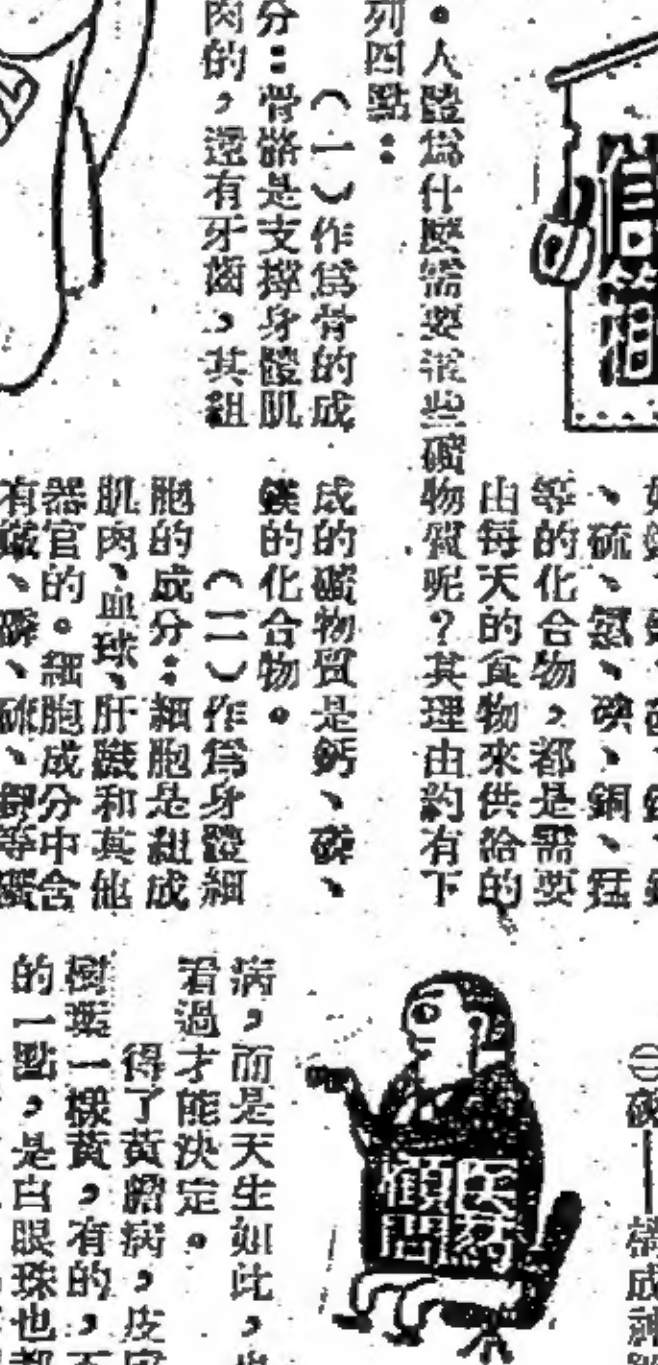 信箱
、硫、氯、碘、銅、錳
等的化合物，都是需要
由每天的食物來供給的
。人體爲什麼需要這些礦物質呢？其理由約有下
列四點：
（一）作爲骨的成
分：骨骼是支撑身體肌
肉的，還有牙齒，其組
成的礦物質是鈣、磷、
鎂的化合物。
（二）作爲身體細
胞的成分：細胞是組成
肌肉、血球、肝臟和其他
器官的。細胞成分中含
有 、磷、硫、 等
医药
顧問
構成
病，而是天生如此，
看過才能決定。
得了黃膽病，皮
樹葉一樣黃，有的，不
的一點，是白眼珠也都